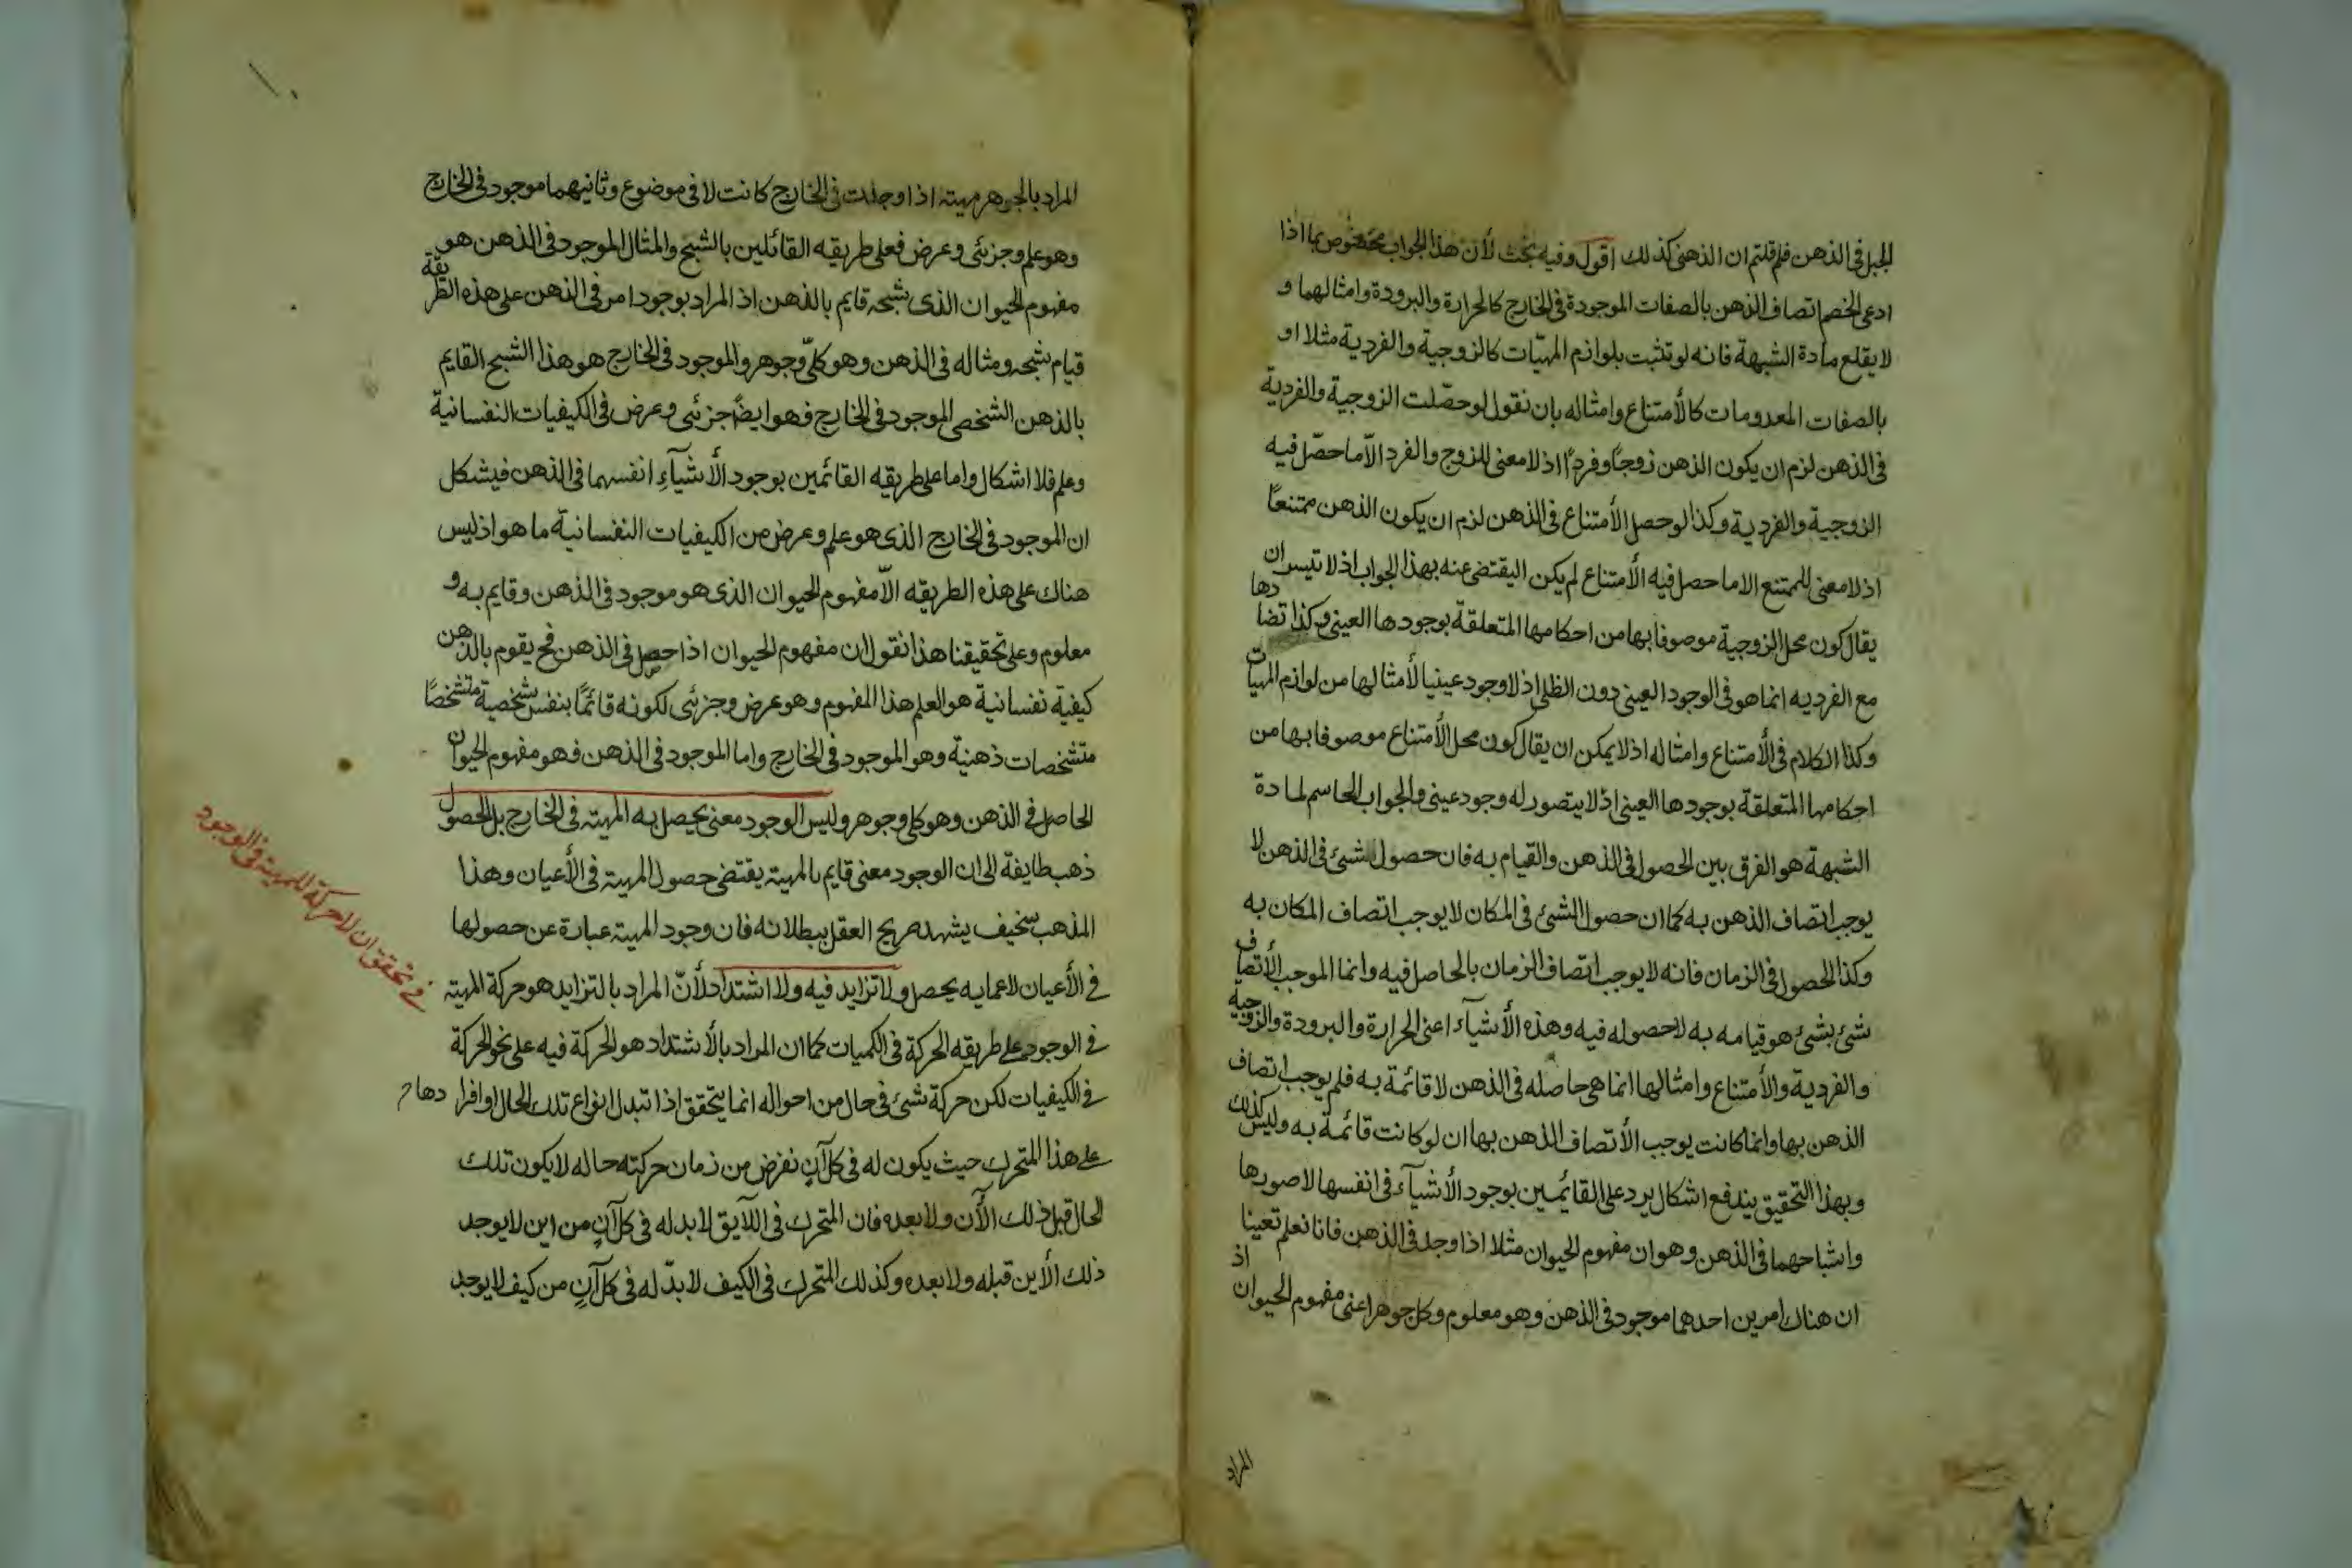 الجبل في الذهن فلم قلتم ان الذهن كذلك اقول وفيه بحث لأن هذا الجواب مخصوص بما اذا
ادعى الخصم اتصاف الذهن بالصفات الموجودة في الخارج كالحرارة والبرودة وامثالهما و
لا يقلع مادة الشبهة فانه لو تثبت بلوازم المهيّات كالزوجية والفردية مثلا او
بالصفات المعدومات كالأمتناع وامثاله بان نقول لو حصّلت الزوجية والفردية
في الذهن لزم ان يكون الذهن زوجًا وفردًا اذ لا معنى للزوج والفرد الّا ما حصّل فيه
الزوجية والفردية وكذا لو حصل الأمتناع في الذهن لزم ان يكون الذهن ممتنعًا
اذ لا معنى للممتنع الا ما حصل فيه الأمتناع لم يكن التفصي عنه بهذا الجواب اذ لا تيسر ان
يقال كون محل الزوجية موصوفا بها من احكامها المتعلقة بوجودها العيني وكذا تضادها
مع الفرديه انما هو في الوجود العيني دون الظلي اذ لا وجود عينيا لأمثالها من لوازم المهيات
وكذا الكلام في الأمتناع وامثاله اذ لا يمكن ان يقال كون محل الأمتناع موصوفا بها من
احكامها المتعلقة بوجودها العيني اذ لا يتصور له وجود عيني والجواب الحاسم لمادة
الشبهة هو الفرق بين الحصول في الذهن والقيام به فان حصول الشئ في الذهن لا
يوجب اتصاف الذهن به كما ان حصول الشئ في المكان لا يوجب اتصاف المكان به
وكذا الحصول في الزمان فانه لا يوجب اتصاف الزمان بالحاصل فيه وانما الموجب الأتصاف
شئ بشئ هو قيامه به لا حصوله فيه وهذه الأشيآء اعنى الحرارة والبرودة والزوجية
والفردية والأمتناع وامثالها انما هي حاصله في الذهن لا قائمة به فلم يوجب اتصاف
الذهن بها وانما كانت يوجب الأتصاف الذهن بها ان لو كانت قائمة به وليس كذلك
وبهذا التحقيق يندفع اشكال يرد على القائمين بوجود الأشيآء في انفسها لا صورها
واشباحهما في الذهن وهو ان مفهوم الحيوان مثلا اذا وجد في الذهن فانا نعلم تعينا
ان هناك امرين احدهما موجود في الذهن وهو معلوم وكل جوهر اعنى مفهوم الحيوان اذ
المراد
المراد بالجوهر مهيته اذا وجدت في الخارج كانت لا في موضوع وثانيهما موجود في الخارج
وهو علم وجزئى وعرض فعلى طريقه القائلين بالشبح والمثال الموجود في الذهن هو
مفهوم الحيوان الذى شبحه قايم بالذهن اذ المراد بوجود امر في الذهن على هذه الطريقة
قيام شبحه ومثاله في الذهن وهو كلىّ وجوهر والموجود في الخارج هو هذا الشبح القايم
بالذهن الشخصى الموجود في الخارج فهو ايضًا جزئى وعرض في الكيفيات النفسانية
وعلم فلا اشكال واما على طريقه القائمين بوجود الأشيآء انفسهما في الذهن فيشكل
ان الموجود في الخارج الذى هو علم وعرض من الكيفيات النفسانية ما هو اذ ليس
هناك على هذه الطريقه الّا مفهوم الحيوان الذى هو موجود في الذهن وقايم به و
معلوم وعلى تحقيقنا هذا نقول ان مفهوم الحيوان اذا حصل في الذهن فح يقوم بالذهن
كيفية نفسانية هو العلم هذا المفهوم وهو عرض وجزئى لكونه قائمًا بنفس شخصية متشخصًا
متشخصات ذهنية وهو الموجود في الخارج واما الموجود في الذهن فهو مفهوم الحيوان
الحاصل في الذهن وهو كلى وجوهر وليس الوجود معنى يحصل به المهيته في الخارج بل الحصول
ذهب طايفة الى ان الوجود معنى قايم بالمهيته يقتضى حصول المهية في الأعيان وهذا
المذهب سخيف يشهد صريح العقل ببطلانه فان وجود المهية عبارة عن حصولها
في الأعيان لا عما به يحصل ولا تزايد فيه ولا اشتداد لأنّ المراد بالتزايد هو حركة المهيته
في الوجود على طريقه الحركة في الكميات كما ان المراد بالأشتداد هو الحركة فيه على نحو الحركة
في الكيفيات لكن حركة شئ في حال من احواله انما يتحقق اذا تبدل انواع تلك الحال او افرادها
على هذا المتحرك حيث يكون له في كل آنٍ نفرض من زمان حركته حاله لا يكون تلك
الحال قبل ذلك الأن ولا بعده فان المتحرك في اللايق لا بد له في كل آنٍ من اين لا يوجد
ذلك الأين قبله ولا بعده وكذلك المتحرك في الكيف لا بدّ له في كل آنٍ من كيف لا يوجد
في تحقق ان لا حركة للمهيته في الوجود